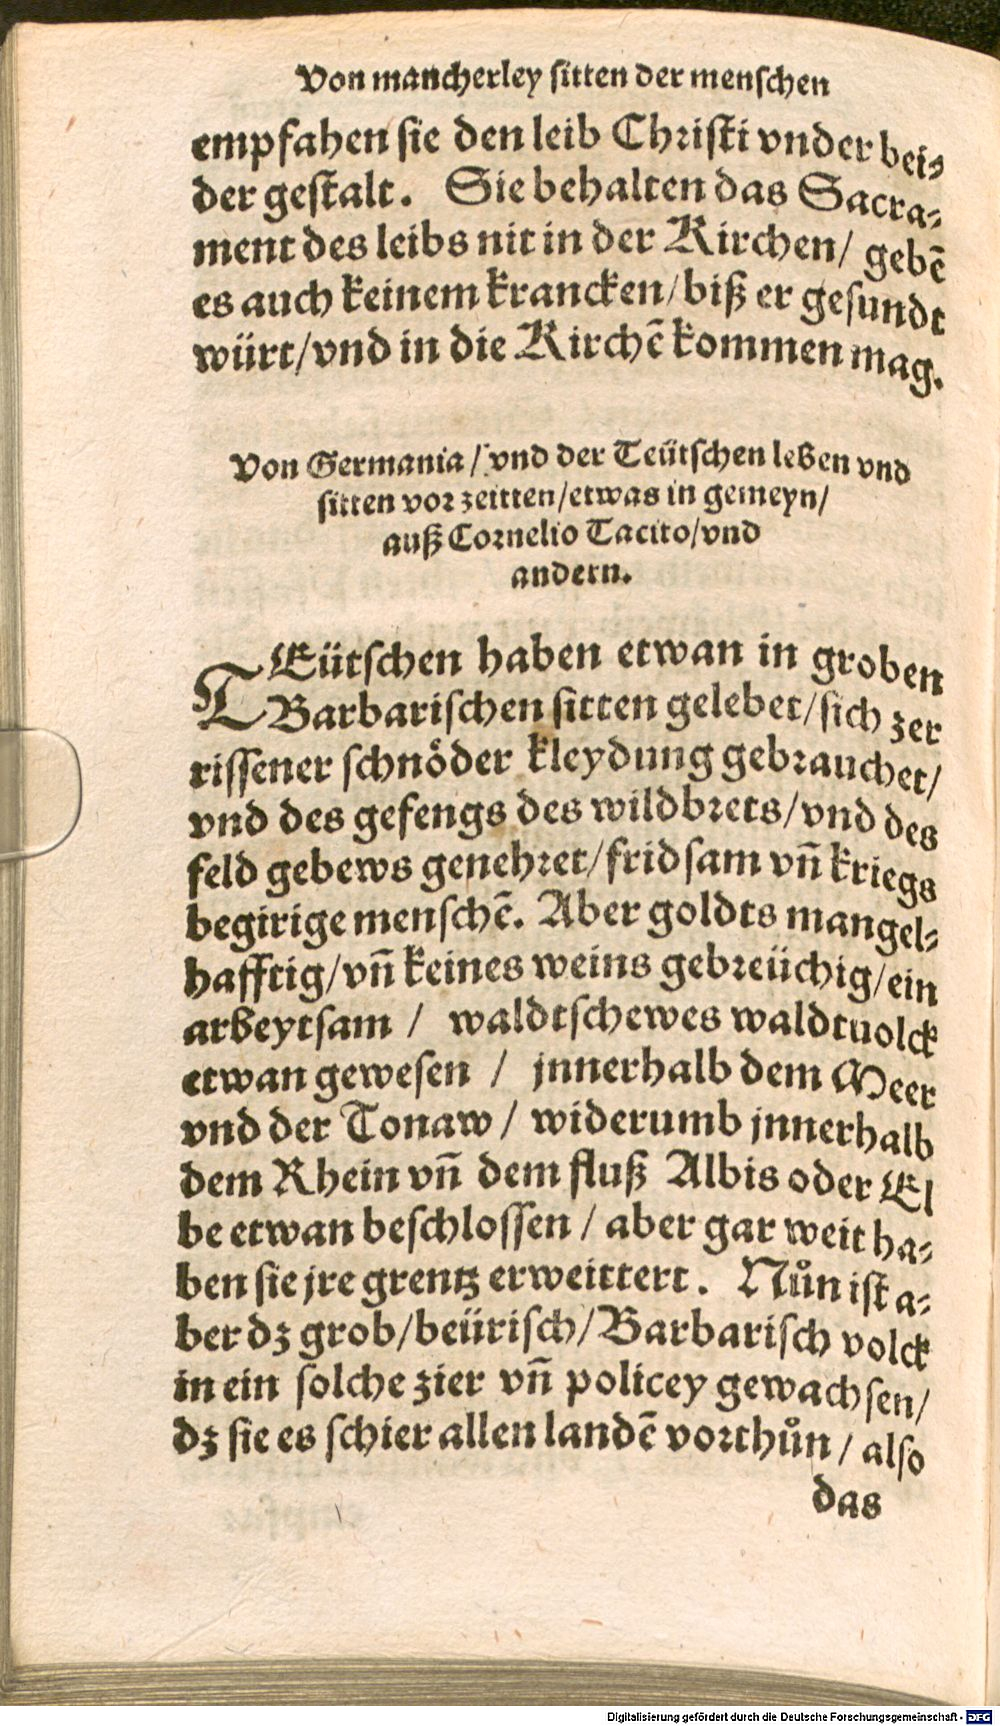 Von mancherley sitten der menschen
empfahen sie den leib Christi vnder bei-
der gestalt. Sie behalten das Sacra-
ment des leibs nit in der Kirchen/ gebē
es auch keinem krancken/biß er gesundt
würt/vnd in die Kirchē kommen mag.
Von Germania/ vnd der Teütschen leben vnd
sitten vor zeitten/etwas in gemeyn/
auß Cornelio Tacito/vnd
andern.
TEütschen haben etwan in groben
Barbarischen sitten gelebet/sich zer
rissener schnöder kleydung gebrauchet/
vnd des gefengs des wildbrets/vnd des
feld gebews genehret/fridsam vñ kriegs
begirige menschē. Aber goldts mangel-
hafftig/vñ keines weins gebreüchig/ein
arbeytsam / waldtschewes waldtuolck
etwan gewesen / jnnerhalb dem Meer
vnd der Tonaw / widerumb jnnerhalb
dem Rhein vñ dem fluß Albis oder El
be etwan beschlossen / aber gar weit ha-
ben sie jre grentz erweittert. Nůn ist a-
ber dz grob/beürisch/Barbarisch volck
in ein solche zier vñ policey gewachsen/
dz sie es schier allen landē vorthůn / also
das
Digitalisierung gefördert durch die Deutsche Forschungsgemeinschaft - DFG